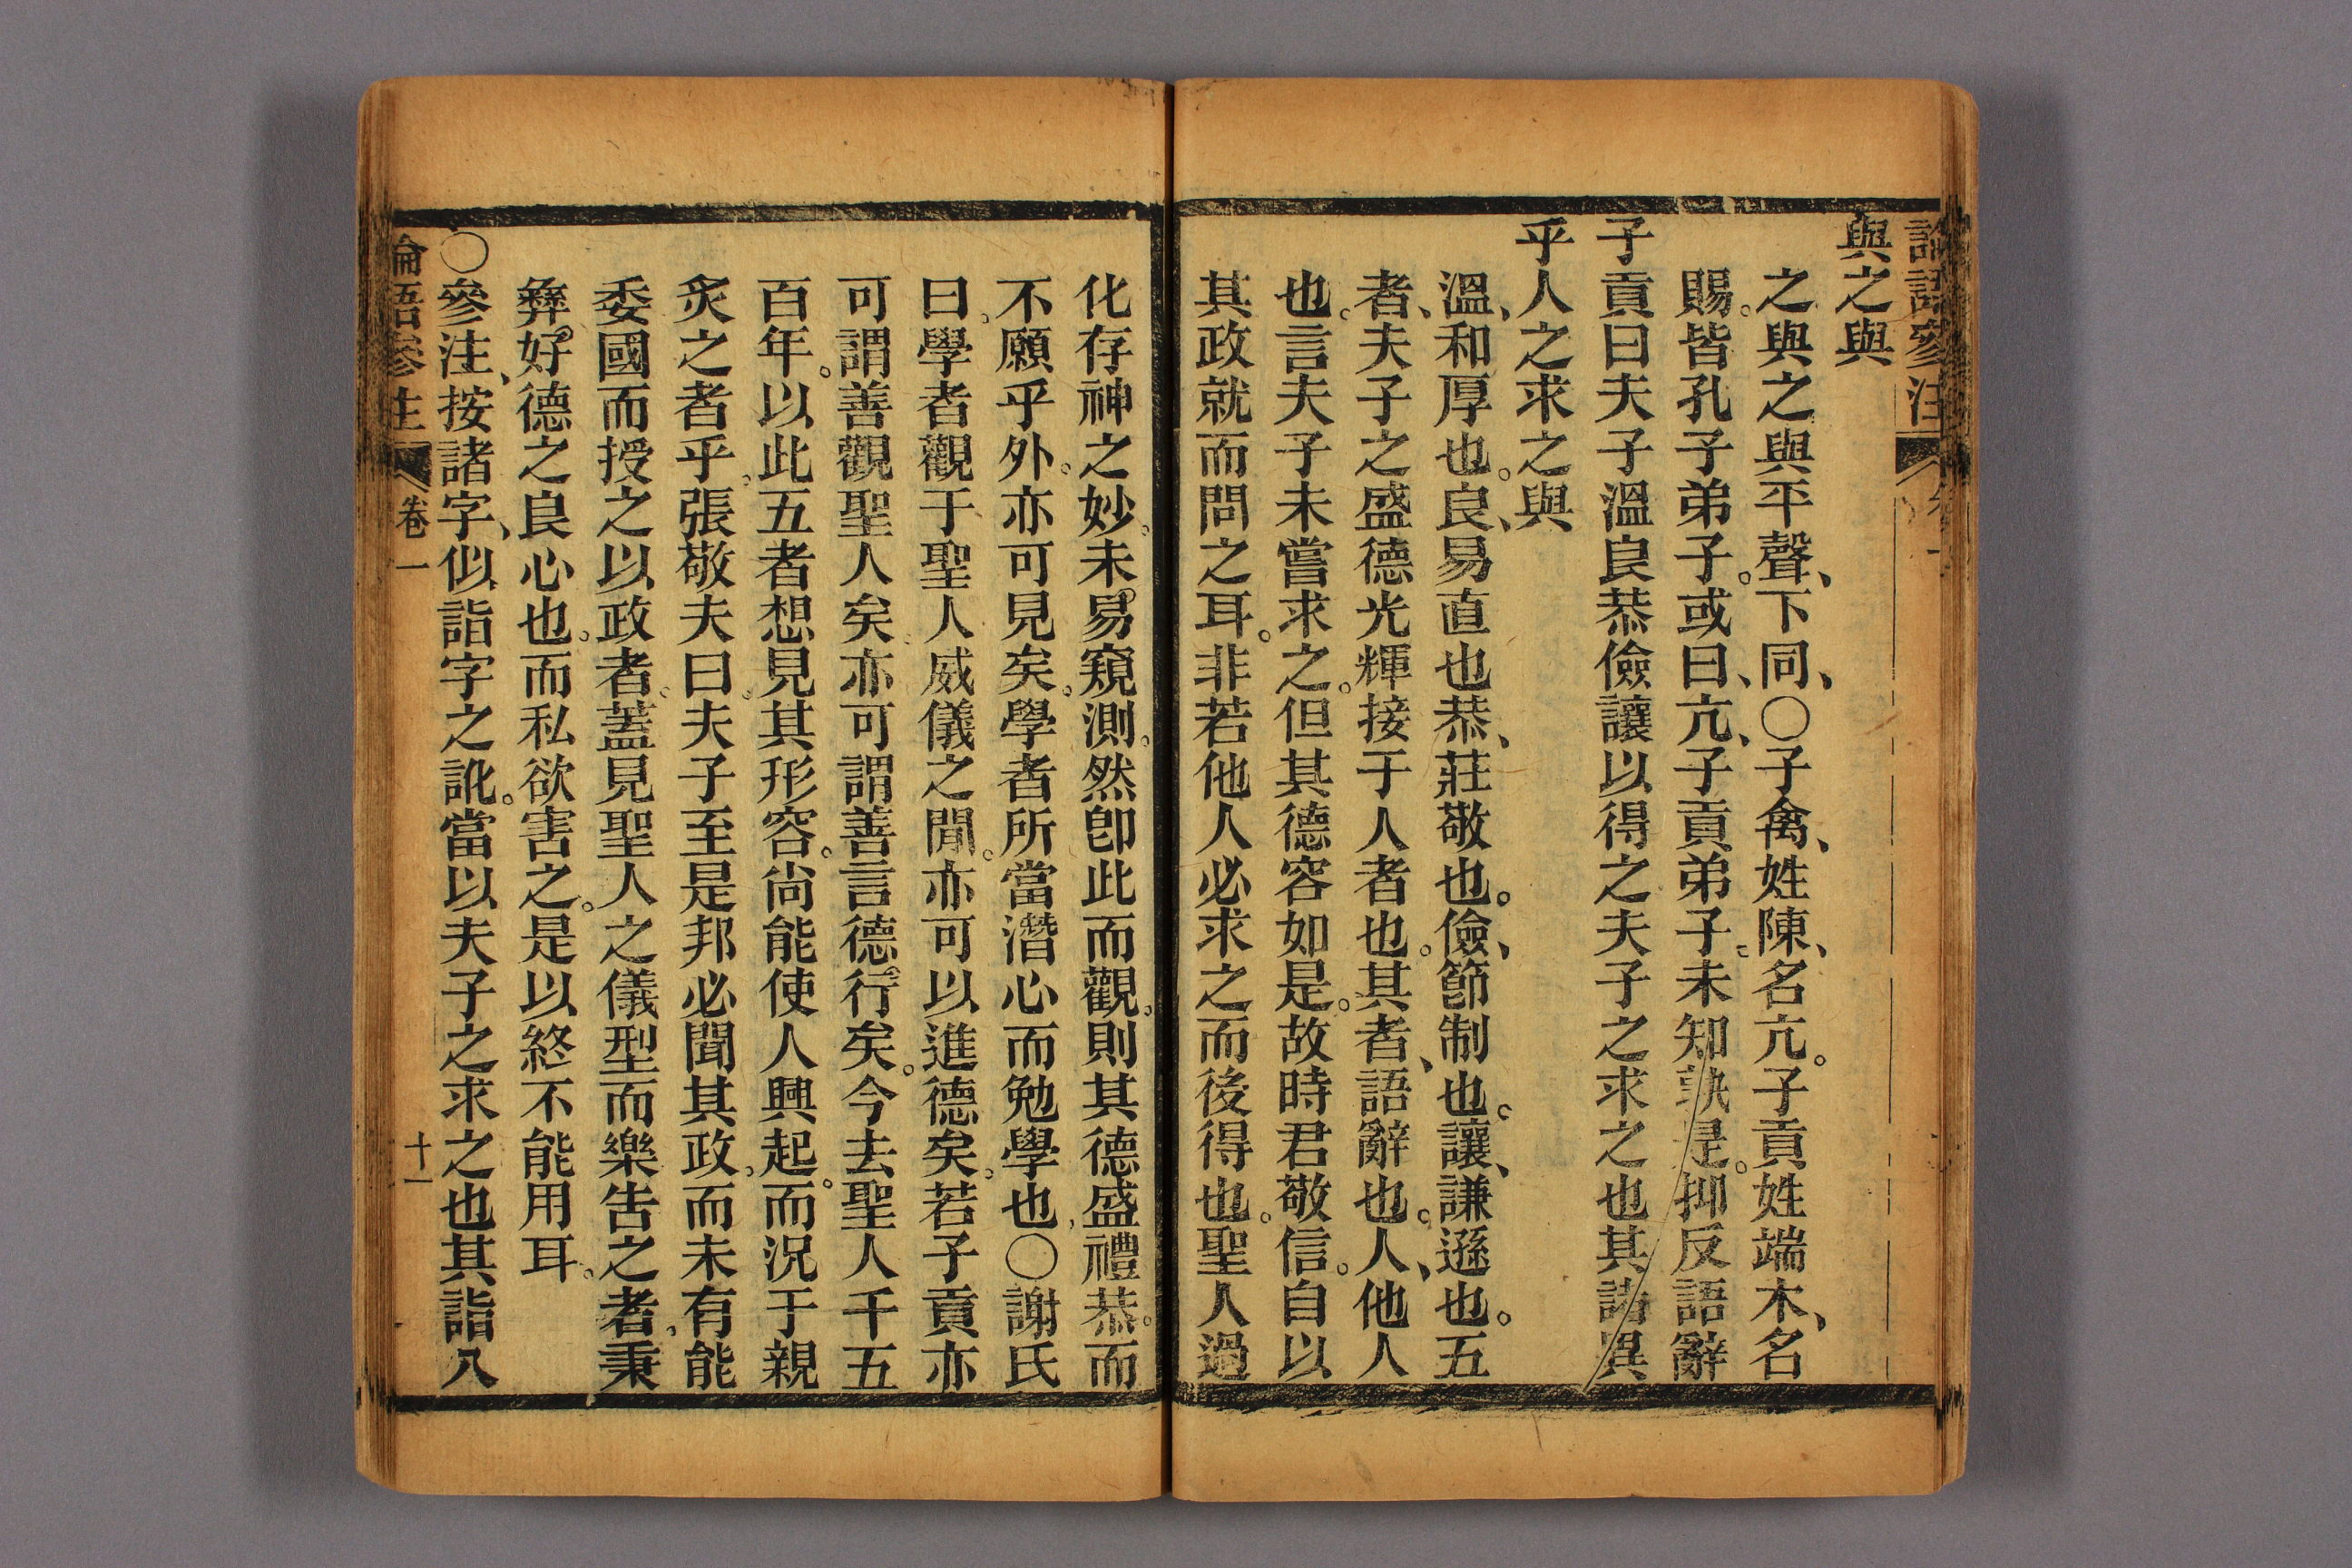 論語參注
與之與
之與之與平聲、下同、〇子禽、姓陳、名亢。子貢姓端木、名
賜。皆孔子弟子。或曰、亢、子貢弟子。未知孰是。抑反語辭
子貢曰夫子溫良恭儉讓以得之夫子之求之也其諸異
乎人之求之與
溫、和厚也。良、易直也恭、莊敬也。儉、節制也。讓、謙遜也。五
者、夫子之盛德光輝接于人者也。其者、語辭也。人、他人
也。言夫子未嘗求之。但其德容如是。故時君敬信。自以
其政就而問之耳。非若他人必求之而後得也。聖人過
化存神之妙。未易窺測。然卽此而觀。則其德盛禮恭。而
不願乎外。亦可見矣。學者所當潛心而勉學也。〇謝氏
曰。學者觀于聖人威儀之閒。亦可以進德矣。若子貢亦
可謂善觀聖人矣。亦可謂善言德行矣。今去聖人千五
百年。以此五者想見其形容。尚能使人興起。而況于親
炙之者乎。張敬夫曰。夫子至是邦必聞其政。而未有能
委國而授之以政者。蓋見聖人之儀型而樂告之者。秉
彝好德之良心也。而私欲害之。是以終不能用耳。
〇參注、按諸字、似詣字之訛。當以夫子之求之也其詣八
論語參注 卷一 十一